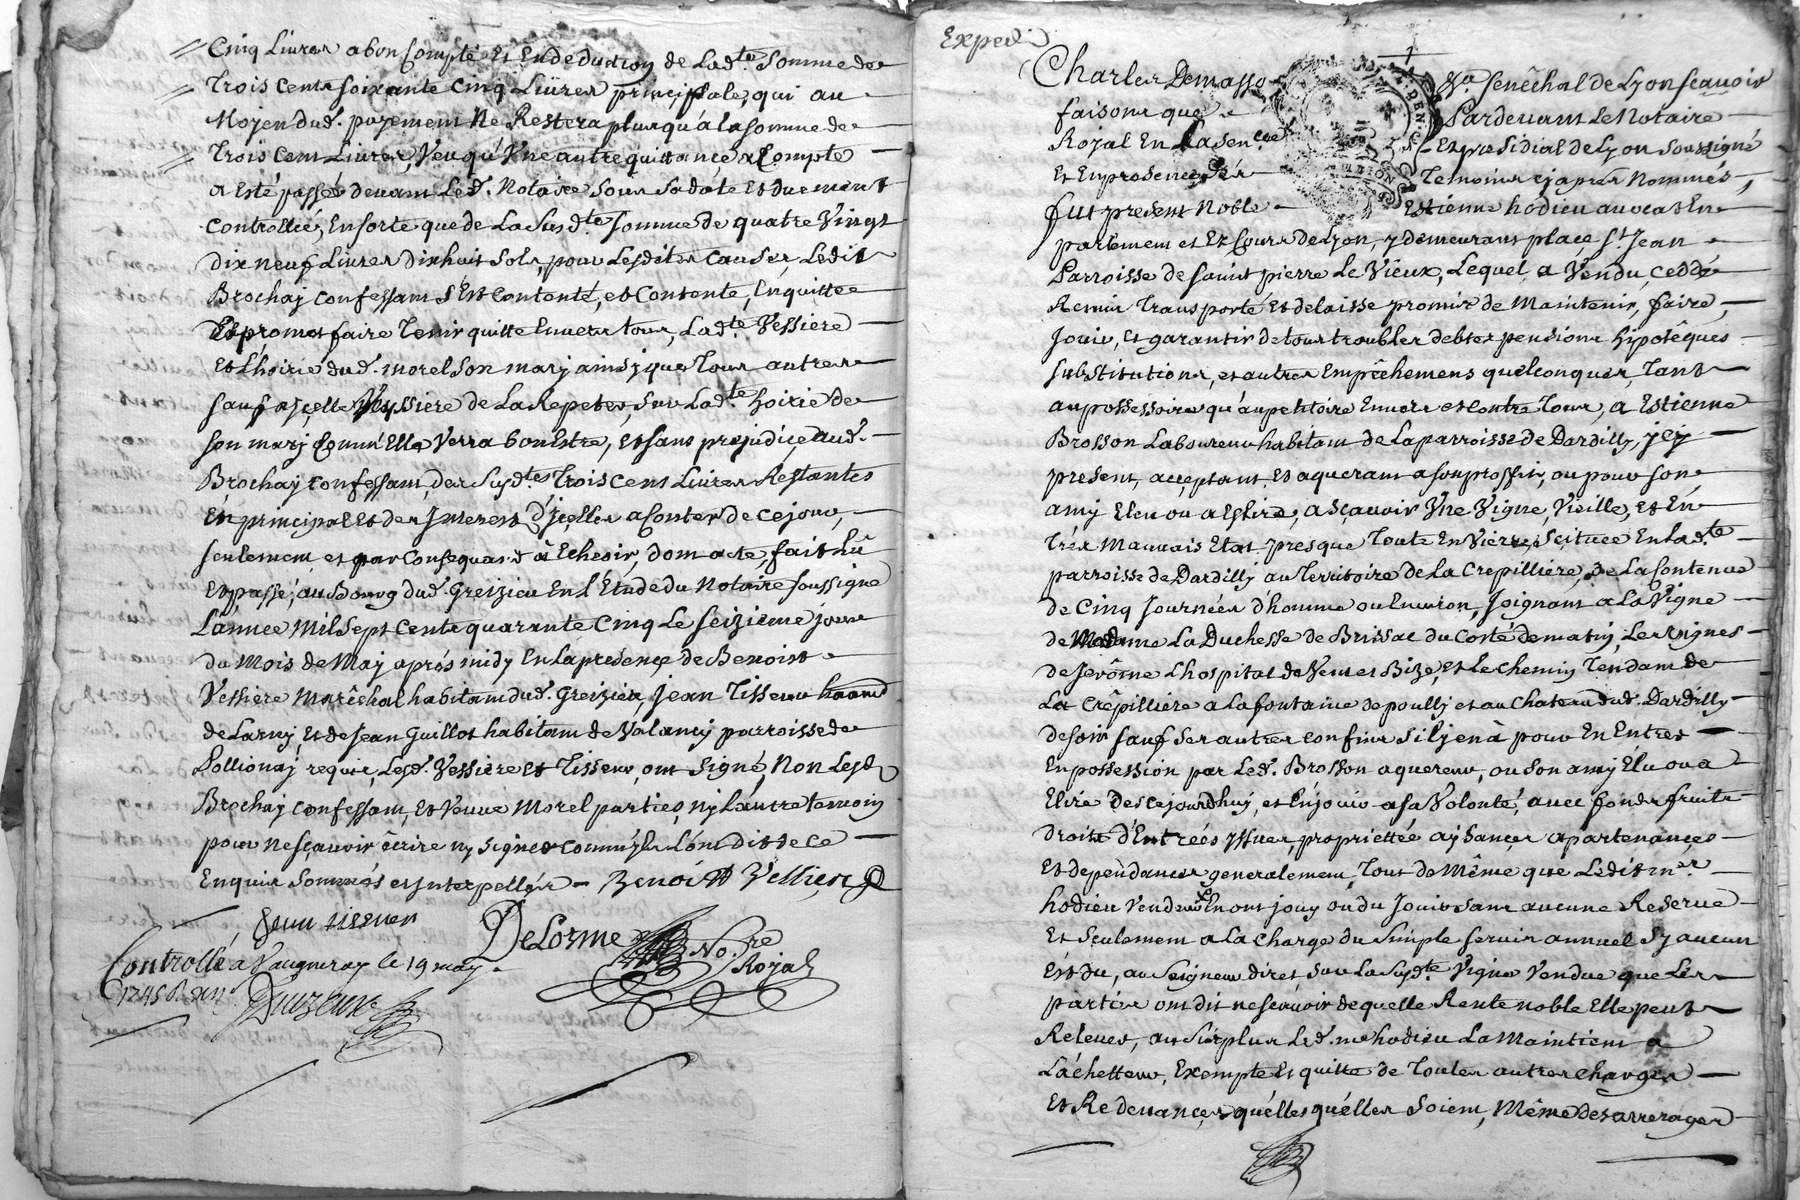 Cinq Livres a bon Compte Et En deduction de Lad.te Somme de
Trois Cents soixante Cinq Livres principale, qui au
Moyen dud. payement Ne Restera plus qu'a la somme de
Trois Cent Livres, Veu qu'Une autre quittance a Compte
a Esté passée devant Led. Notaire sous sa date Et duement
Controllée, En sorte que de La Susd.te somme de quatre Vingt
dix neuf Livres dix huit sols, pour Lesdites Causes, Ledit
Brochaj confessant s'Est Contenté, et Contente, En quitte
Et promet faire Tenir quitte Envers tous, Lad.te Vessiere
Et L'hoirie dud. morel Son mary ainsj que Tous autres
sauf a jcelle Veyssiere de La Repeter, sur Lad.te hoirie de
son mary Comm' Elle Verra bon Estre, Et sans prejudice, aud.
Brochaj confessant, des Susd.tes Trois cent Livres Restantes
En principal Et des Interests d'jcelles a Conter de ce jour,
seulement et par Consequand à Echeoir, dont acte, fait Lû
Et passé, au Bourg dud. Greizieu En L'Etude du Notaire soussigné
L'année Mil Sept Cents quarante Cinq Le seizieme jour
du Mois de Maj après midy En La presence de Benoist
Vessiere Maréchal habitant dud. Greizieu, jean Tisseur
de Larny, Et de Jean Guillot habitant de Valancy parroisse de
Pollionaj requis, Lesd. Vessiere Et Tisseur, ont signé, Non Lesd
Brochaj confessant, Et Veuve Morel parties, nj L'autre temoin
pour ne sçavoir écrire ny signer comm'jls L'ont dit de ce
Enquis sommés et Interpellés - Benoit Vessiere
Jean tisseur
DeLorme No.re Royal
Controllé a Vaugneray le 19 may
1745 R
Exped.
Charles Demasso Sénéchal de Lyon scavoir
faisons que Pardevant Le Notaire
Royal En La Sen.cée Et presidial de Lyon soussigné
Et En presence des Temoins cj après Nommés,
fut present Noble Estienne hodieu avocat En
parlement et Ez Cours de Lyon, y demeurant place S.t Jean
Parroisse de saint pierre Le Vieux, Lequel a Vendu, ceddé
Remis Transporté Et delaisse promis de Maintenir, faire,
Jouir, Et garantir de tous troubles debtes pensions hipotêques
substitutions, et autres Empêchemens quelconques, Tant
au possessoire qu'au petitoire Envers et contre Tous, a Estienne
Brosson Laboureur habitant de La parroisse de Dardilly, jcy
present, acceptant Et aquerant a son proffit, ou pour son
amy Eleu ou a Eslire, a sçavoir Une Vigne, Vieille, Et En
Très Mauvais Etat presque Toute En Vieres, scituée En Lad.te
parroisse de Dardilly au Territoire de La Crepilliere, de La Contenue
de Cinq Journées d'homme ou Environ, Joignant a La Vigne
de Madame La Duchesse de Brissac du Costé de matin, Les Vignes
de Jerôme L'hospital de Vent et Bize, Et Le chemin Tendant de
La Crêpilliere a La fontaine de poully et au Chateau dud. Dardilly
de soir sauf ses autres confins s'il y en à pour En Entrer
En possession par Led. Brosson aquereur, ou son amy Élu ou a
Elire des cejourdhuj, et En jouir a sa Volonté, avec fonds fruits
droits d'Entrées yssues, proprietté aysances apartenances
Et dependances generalement, Tout de Même que Ledit m.r
hodieu Vendeur En ont jouy ou du Jouir sans aucune Reserve
Et Seulement a La Charge du Simple servis annuel Sj aucun
Est du, au Seigneur direct sur La Susd.te Vigne Vendue que Les
parties ont dit ne scavoir de quelle Rente noble Elle peut
Relever, au Surplus Led. m.e hodieu La Maintient a
L'achetteur, Exempte Et quitte de Toutes autres charges
Et Redevances, quelles qu'elles soient, Même des arrerages